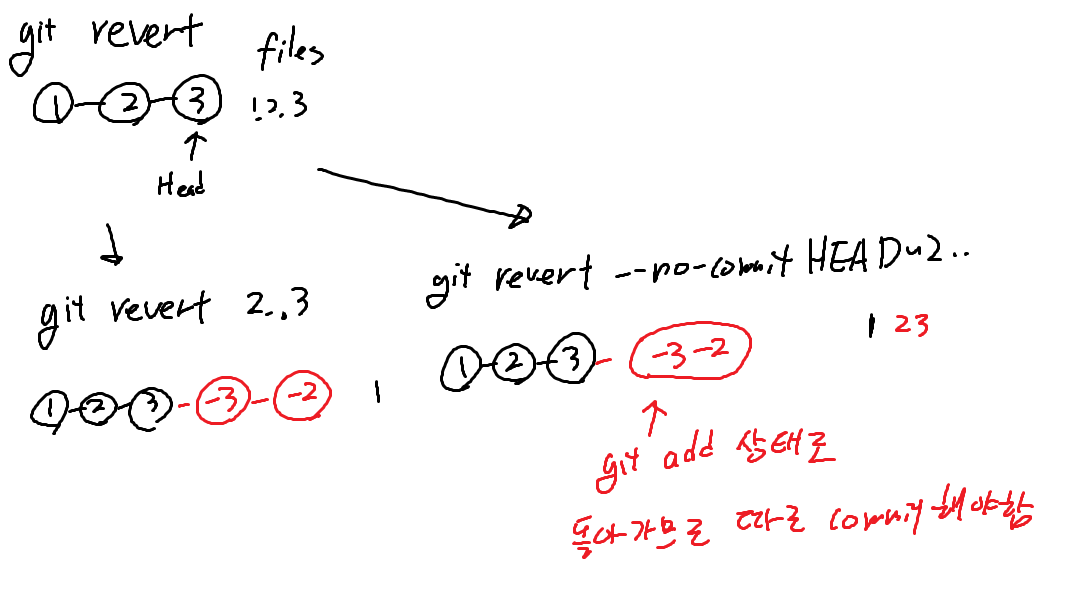 git revert
files
1 2 3
1, 2, 3
Head
git revert 2..3
1 2 3 -3 -2
1
git revert --no-commit HEAD~2..
1 2 3 -3 -2
1 23
git add 상태로
돌아가므로 따로 commit해야함